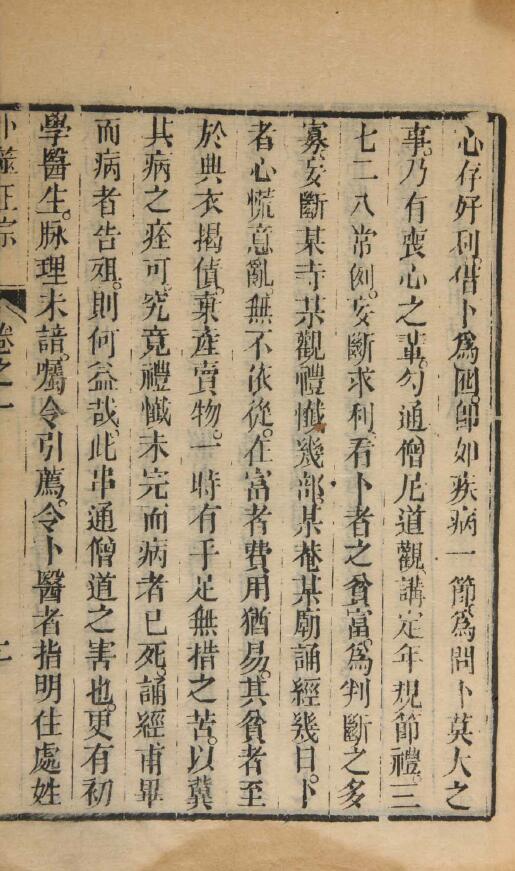 心存好利。借卜爲囮。即如疾病一節。爲問卜莫大之
事。乃有喪心之輩。勾通僧尼道觀。講定年規節禮。三
七二八常例。妄斷求利。看卜者之貧富。爲判斷之多
寡。妄斷某寺某觀禮懺幾部。某庵某廟誦經幾日。卜
者心慌意亂。無不依從。在富者費用猶易。其貧者至
於典衣揭債。棄產賣物。一時有手足無措之苦。以冀
其病之痊可。究竟禮懺未完而病者已死。誦經甫畢
而病者告殂。則何益哉。此串通僧道之害也。更有初
學醫生。脉理未諳。囑令引薦。令卜醫者指明住處姓
卜筮正宗 卷之一